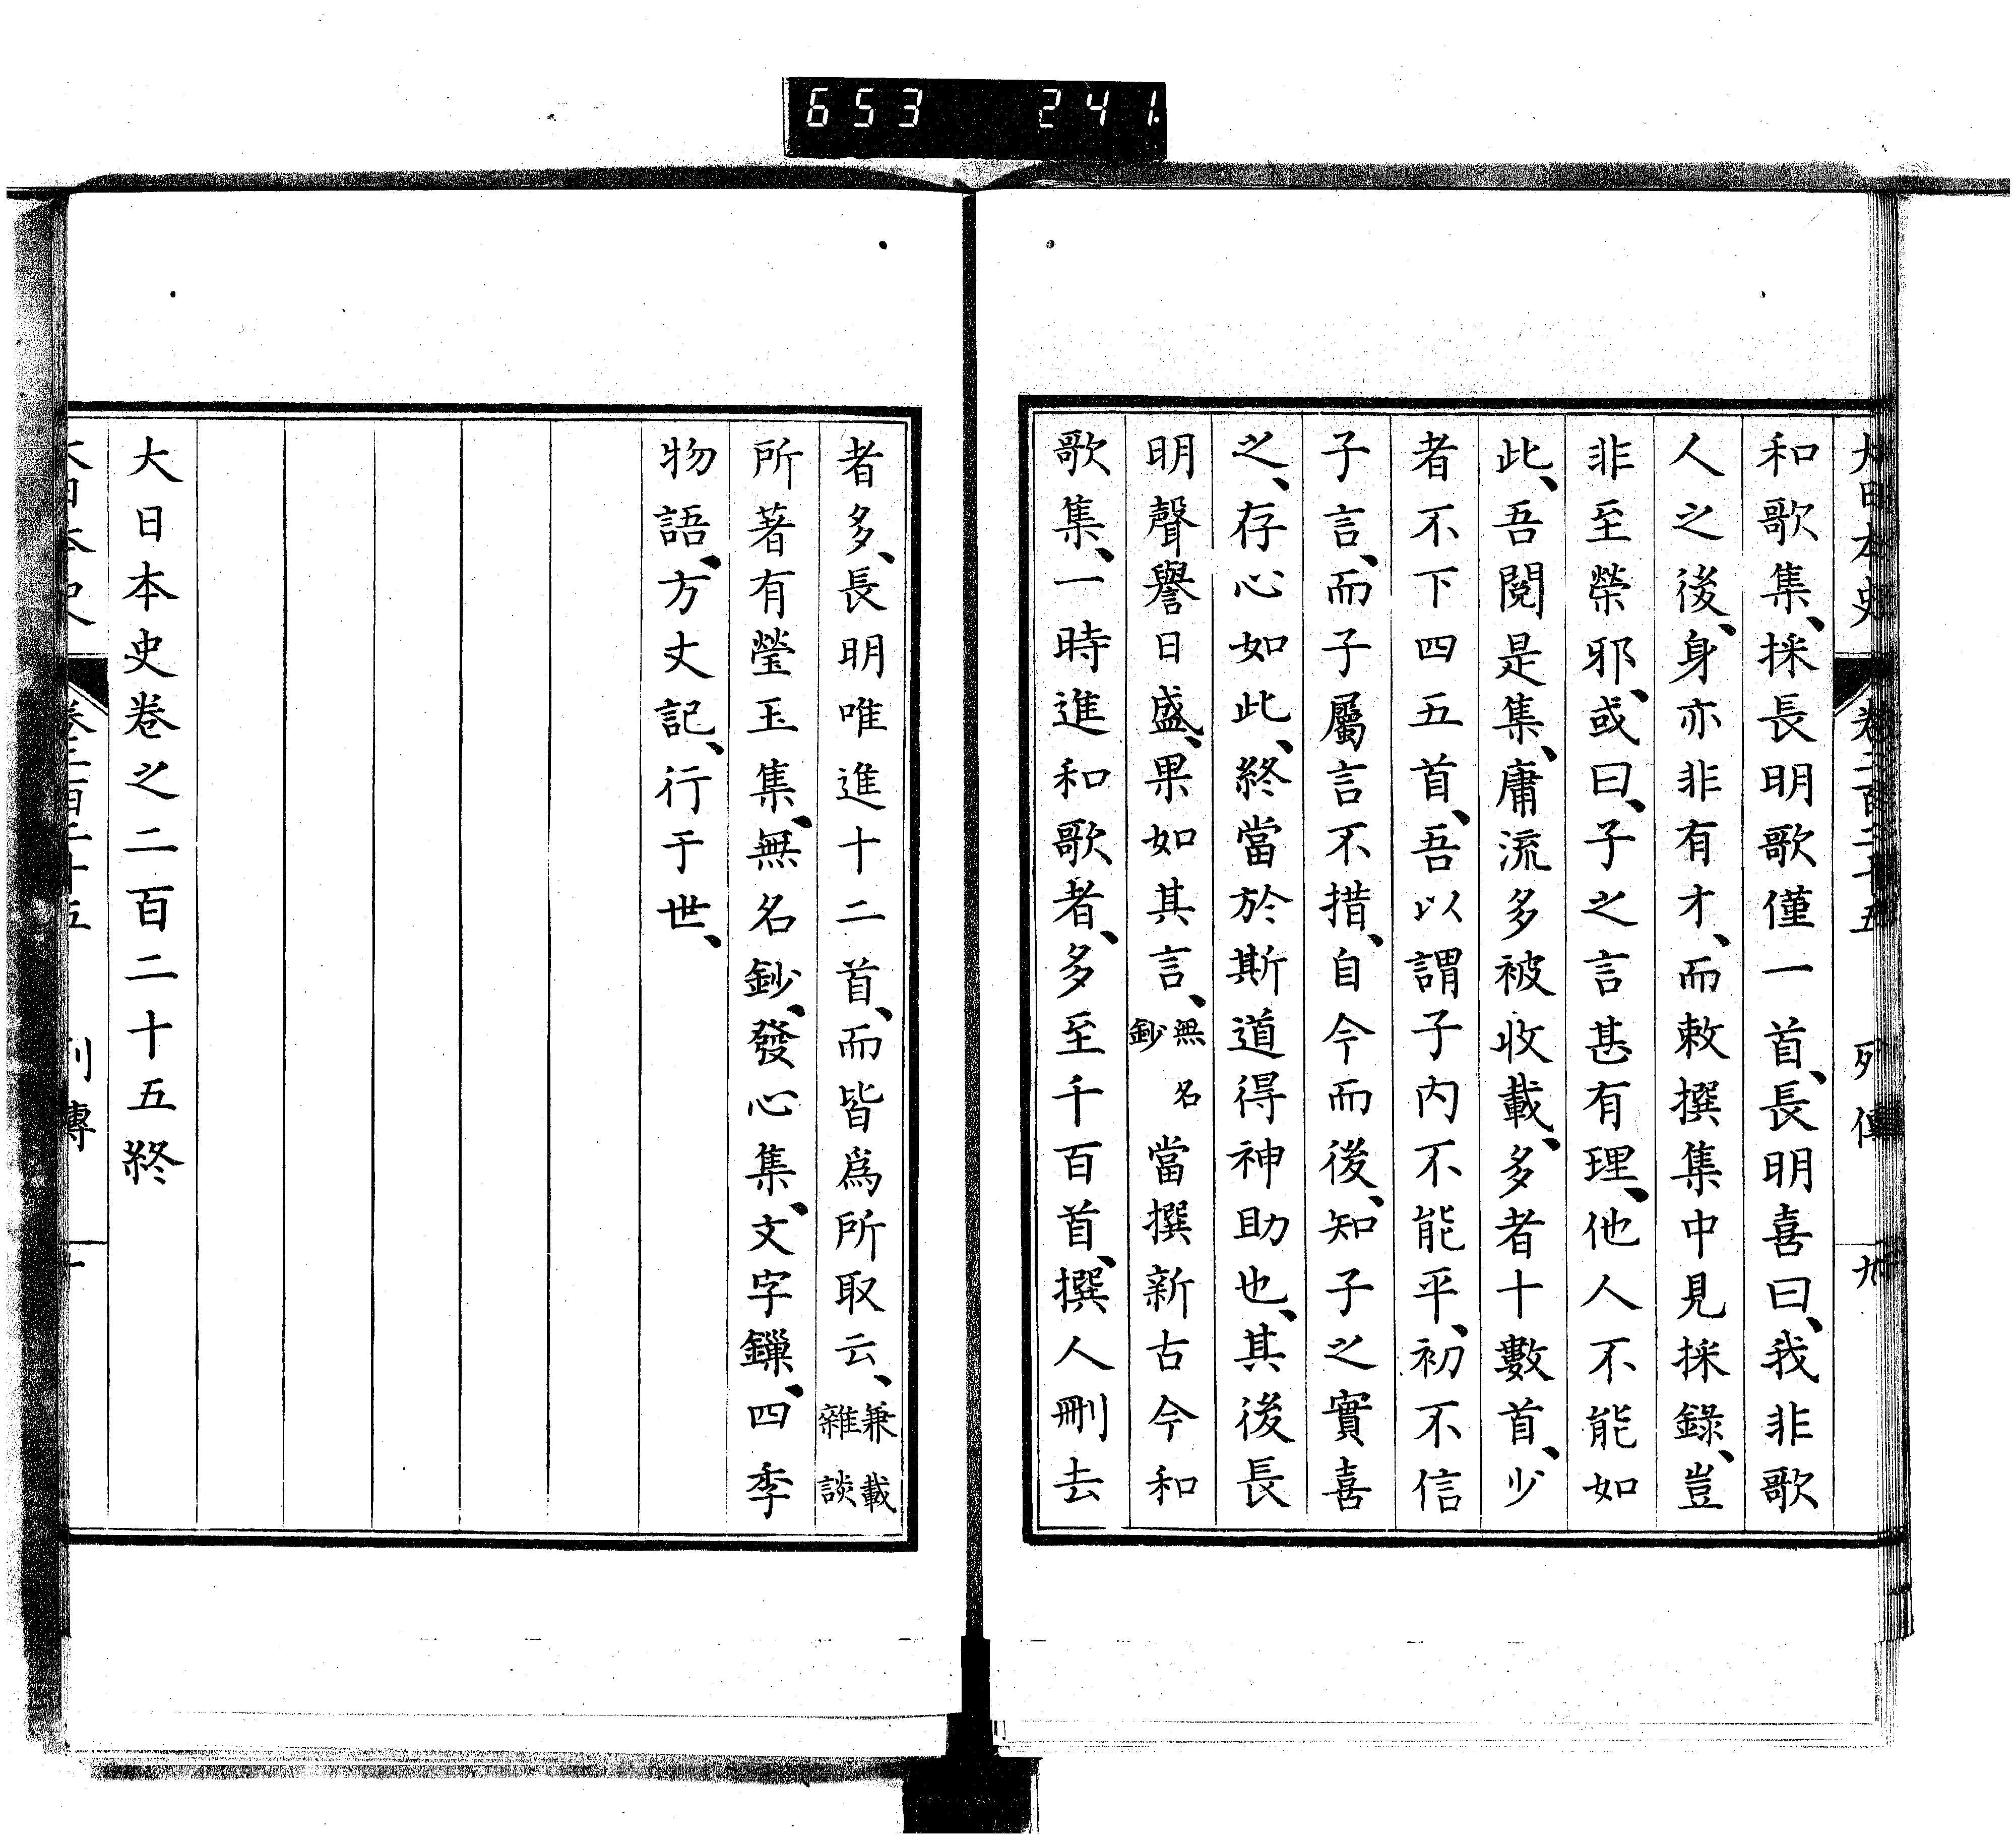 653 241.
大日本史 卷二百二十五 列傳 九
和歌集、採長明歌僅一首、長明喜曰、我非歌
人之後、身亦非有才、而敕撰集中見採錄、豈
非至榮邪、或曰、子之言甚有理、他人不能如
此、吾閱是集、庸流多被收載、多者十數首、少
者不下四五首、吾以謂子內不能平、初不信
子言、而子屬言不措、自今而後、知子之實喜
之、存心如此、終當於斯道得神助也、其後長
明聲譽日盛、果如其言、無名鈔當撰新古今和
歌集、一時進和歌者、多至千百首、撰人刪去
者多、長明唯進十二首、而皆爲所取云、兼載雜談
所著有瑩玉集、無名鈔、發心集、文字鏁、四季
物語、方丈記、行于世、
大日本史卷之二百二十五終
大日本史 卷二百二十五 列傳 十